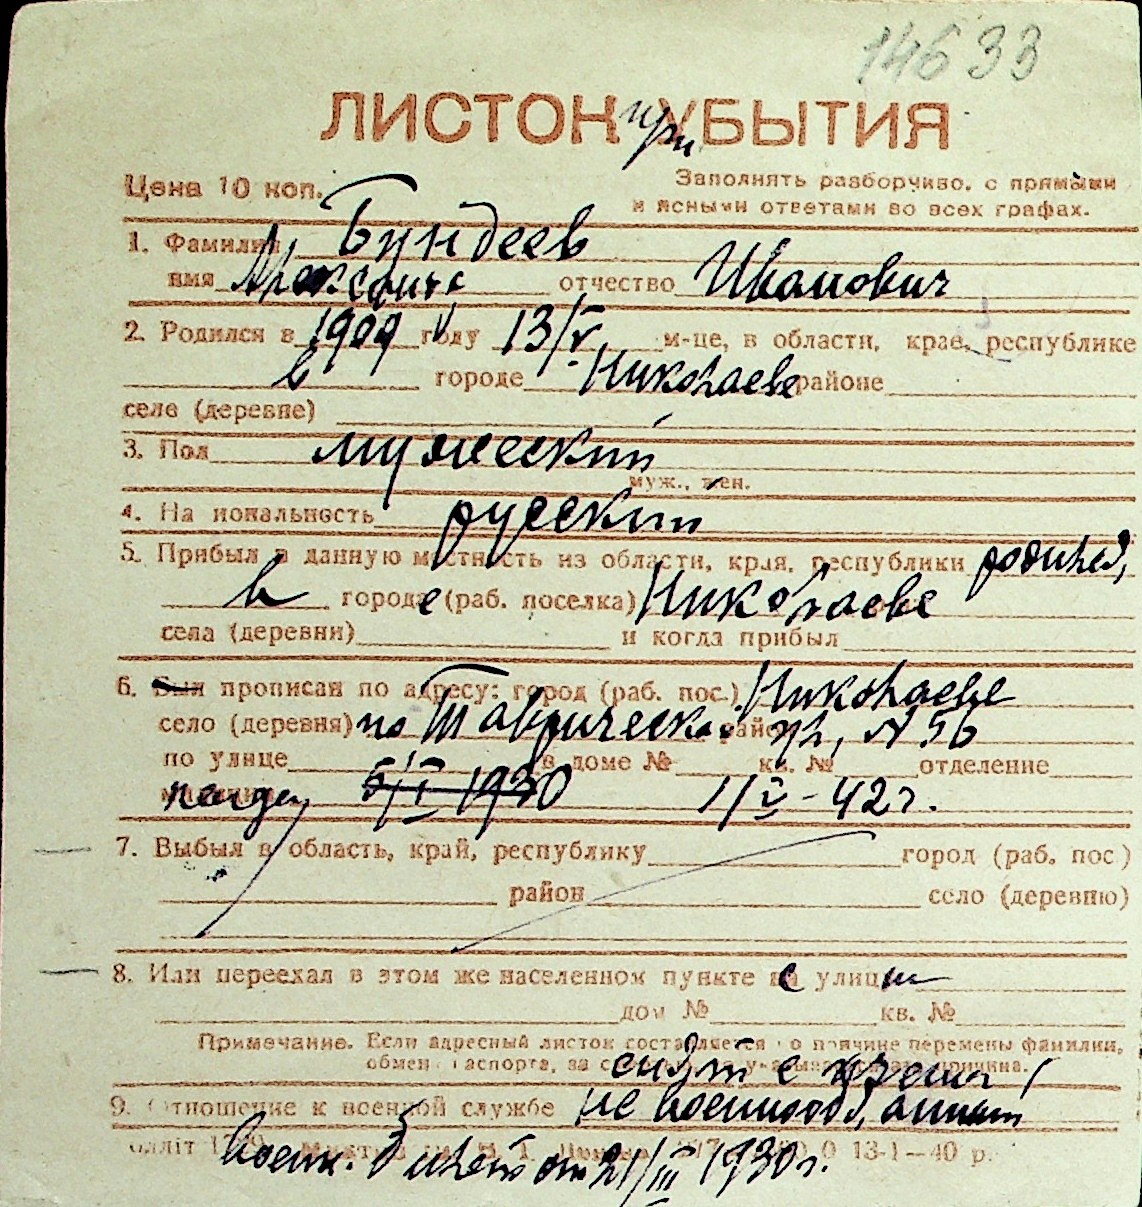 14633
ЛИСТОК при УБЫТИЯ
Цена 10 коп.
Заполнять разборчиво, с прямыми
и ясными ответами во всех графах.
1. Фамилия Бундеев
имя отчество Иванович
2. Родился в 1909 году 13/V м-це, в области, крае, республике
в городе Николаеве районе
селе (деревне)
3. Пол мужеский
муж., жен.
4. Национальность русский
5. Прибыл в данную местность из области, края, республики родился,
в городе (раб. поселка) Николаеве
села (деревни) и когда прибыл
6. Был прописан по адресу: город (раб. пос.) Николаеве
село (деревня) по Таврическо район № 56
по улице в доме № кв. № отделение
5/I 1930 1/V-42 г.
7. Выбыл в область, край, республику город (раб. пос)
район село (деревню)
8. Или переехал в этом же населенном пункте с улицы
дом № кв. №
Примечание. Если адресный листок составляется по причине перемены фамилии,
обмен паспорта, за
снят с
9. Отношение к военной службе не военнооб,
военк. билет от 21/III 1930 г.
13-1—40 р.